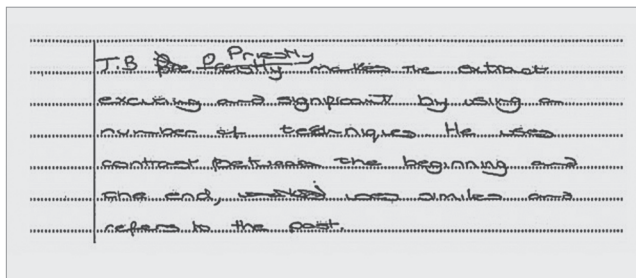 J.B Priestly makes the extract
exciting and significant by using a
number of techniques. He uses
contrast between the beginning and
the end, uses similes and
refers to the past.